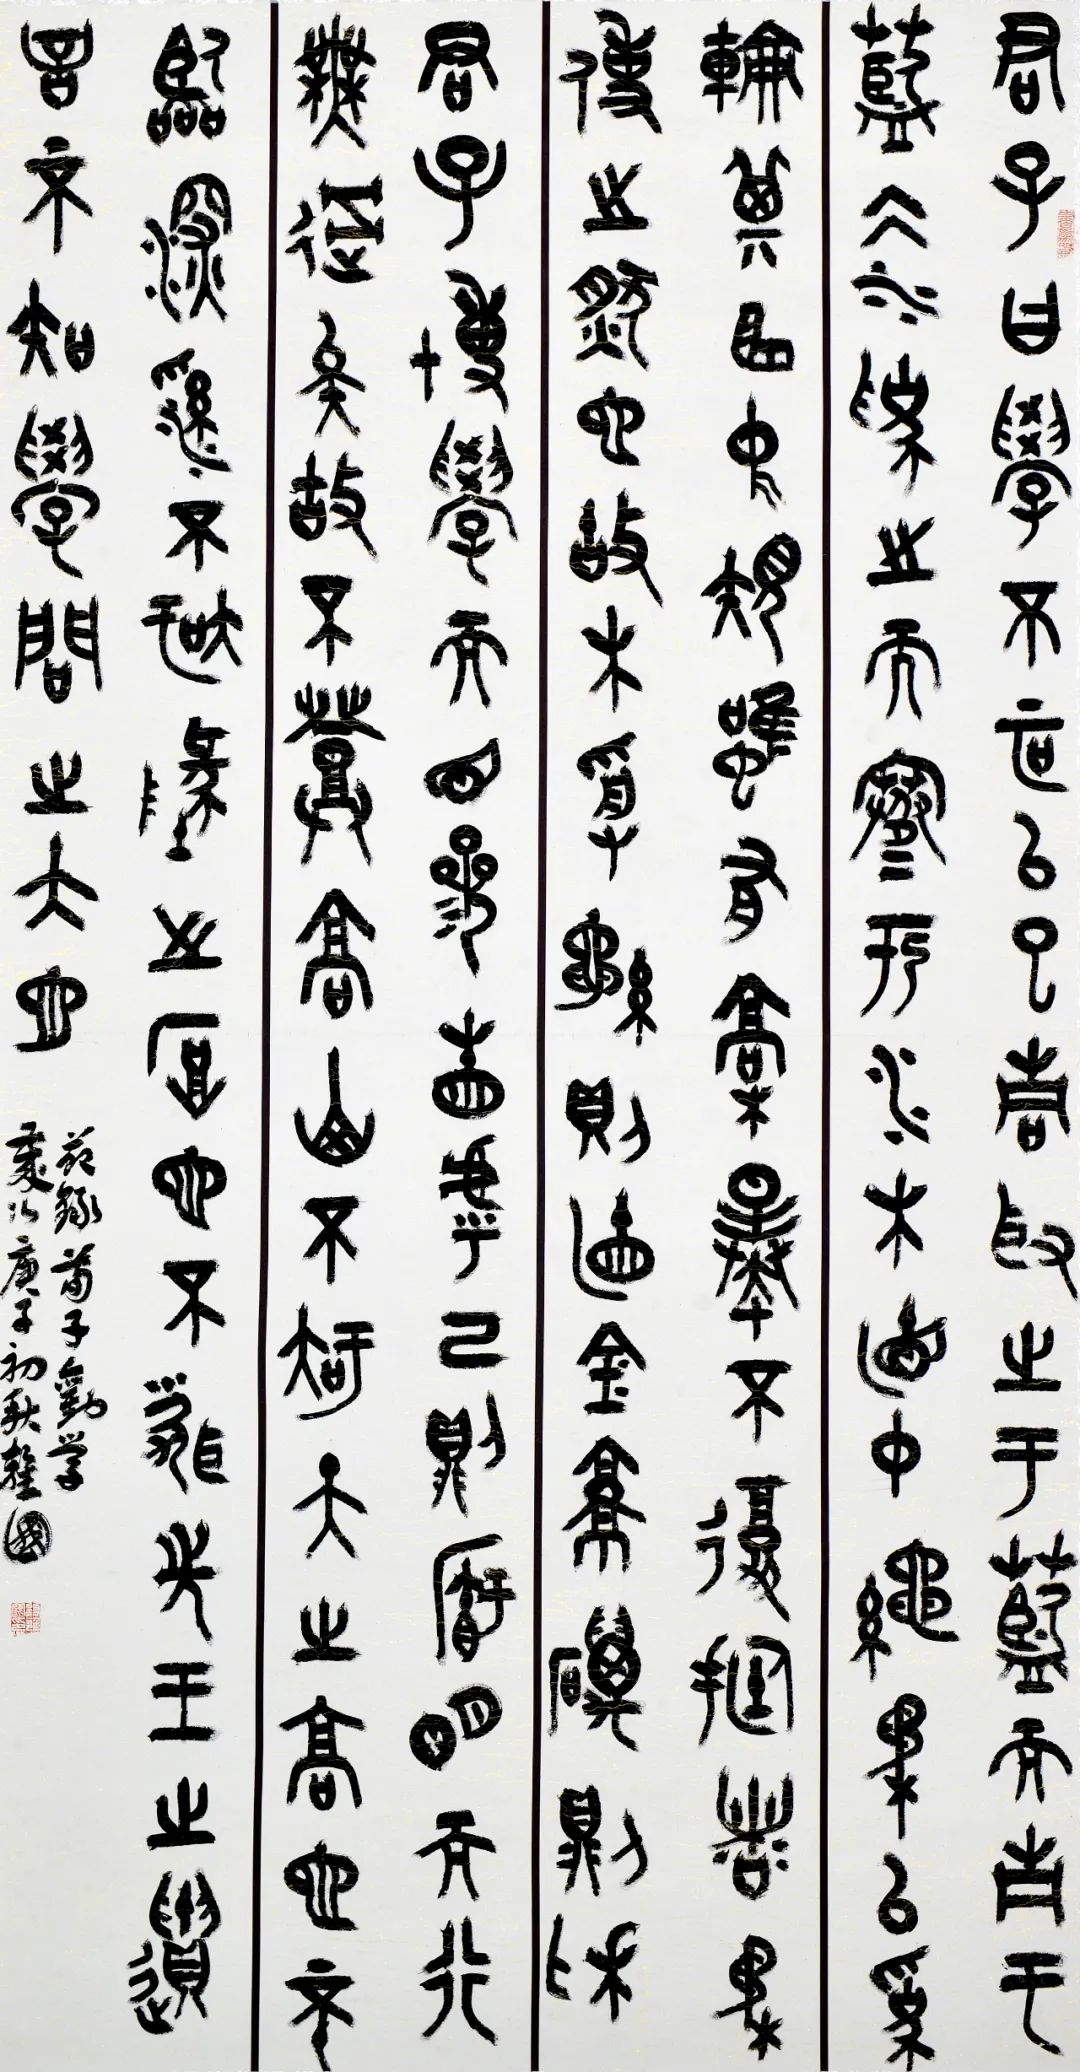 君子曰學不可以已青取之于藍而青于
藍冰水為之而寒于水木直中繩輮以為
輪其曲中規雖有槁暴不復挺者輮
使之然也故木受繩則直金就礪則利
君子博學而日參省乎己則知明而行
無過矣故不登高山不知天之高也不
臨深谿不知地之厚也不聞先王之遺
言不知學問之大也
節錄荀子勸学
歲次庚子初秋